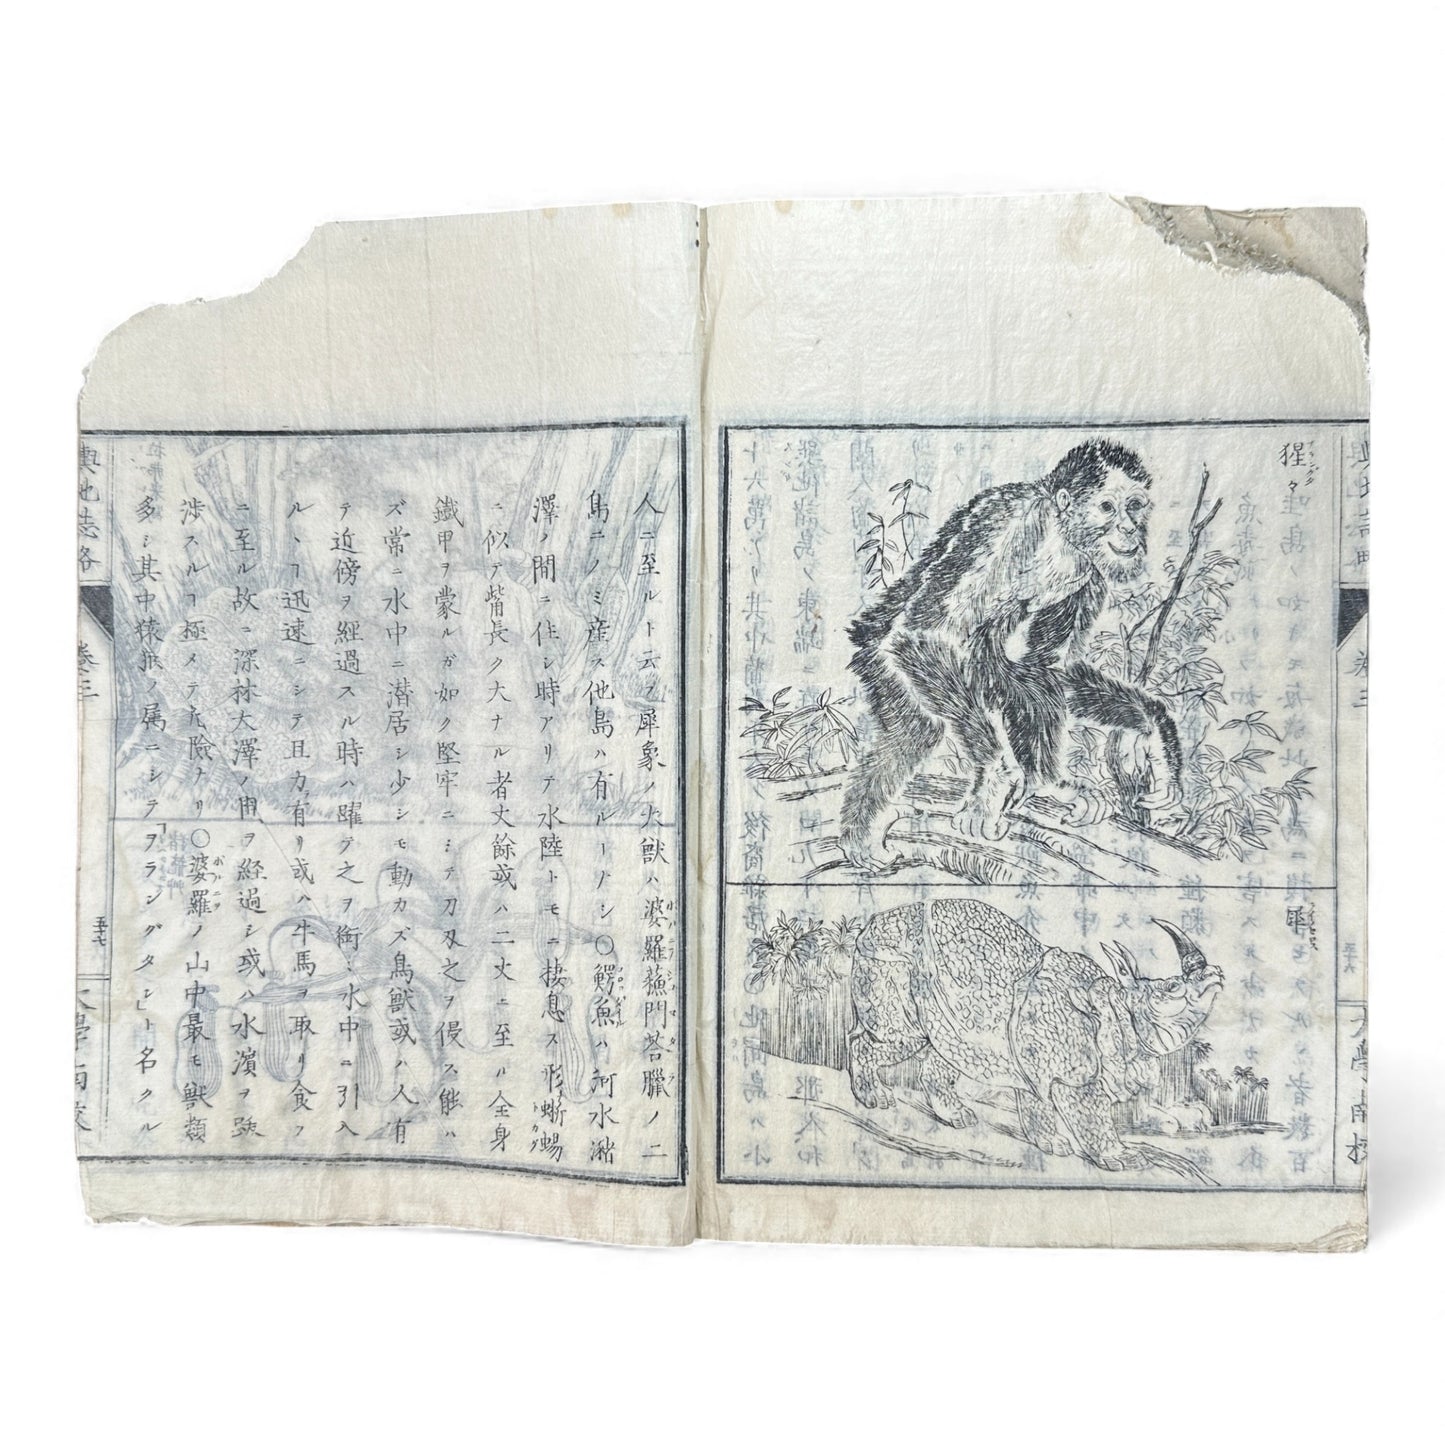 猩々
犀
輿地誌略
卷三
五十六
大學南校
人ニ至ルト云フ犀象ノ大獸ハ婆羅蘇門荅臘ノ二
島ニノミ産ス他島ハ有ルーナシ〇鰐魚ハ河水瀦
澤ノ間ニ住シ時アリテ水陸トモニ棲息ス形蜥蜴
ニ似テ觜長ク大ナル者丈餘或ハ二丈ニ至ル全身
鐵甲ヲ蒙ルガ如ク堅牢ニシテ刀刄之ヲ侵ス能ハ
ズ常ニ水中ニ潜居シ少シモ動カズ鳥獸或ハ人有
テ近傍ヲ經過スル時ハ躍テ之ヲ銜ミ水中ニ引入
ルヽヿ迅速ニシテ且力有リ或ハ牛馬ヲ取リ食フ
ニ至ル故ニ深林大澤ノ間ヲ經過シ或ハ水濱ヲ跋
渉スルヿ極メテ危險ナリ〇婆羅ノ山中最モ獸類
多シ其中猿猴ノ属ニシテ「ヲランダタン」ト名クル
輿地誌略
卷三
大學南校